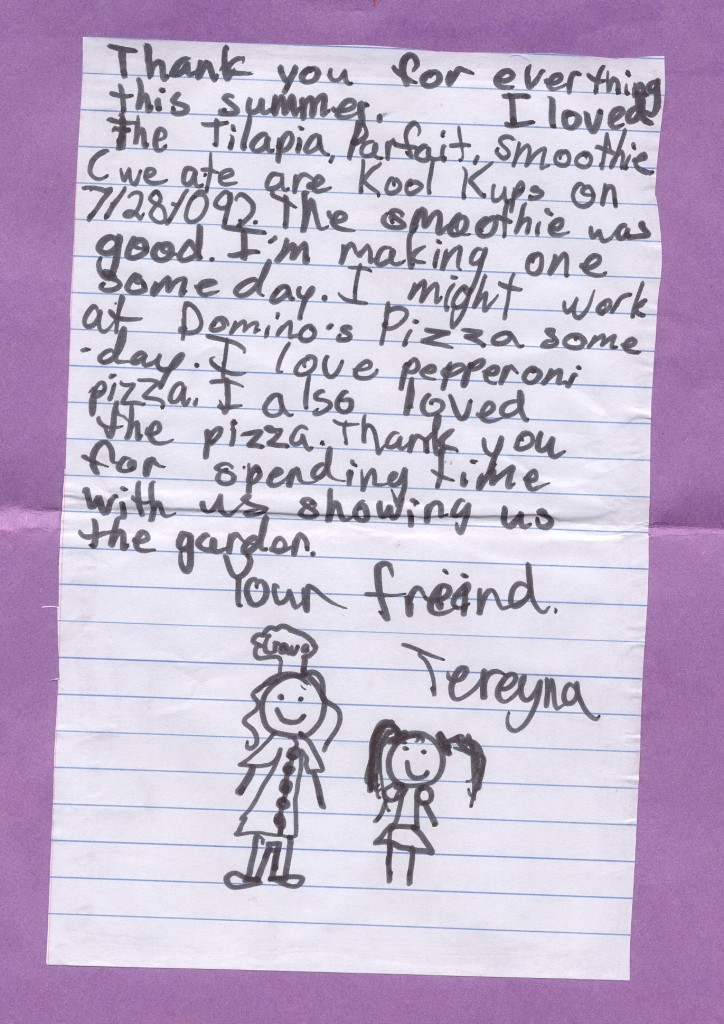 Thank you for everthing
this summer. I loved
the Tilapia, Parfait, smoothie
(we ate are Kool Kups on
7/28/09). The smoothie was
good. I'm making one
some day. I might work
at Domino's Pizza some
-day. I love pepperoni
pizza. I also loved
the pizza. Thank you
for spending time
with us showing us
the gardon.
Your freind.
Tereyna